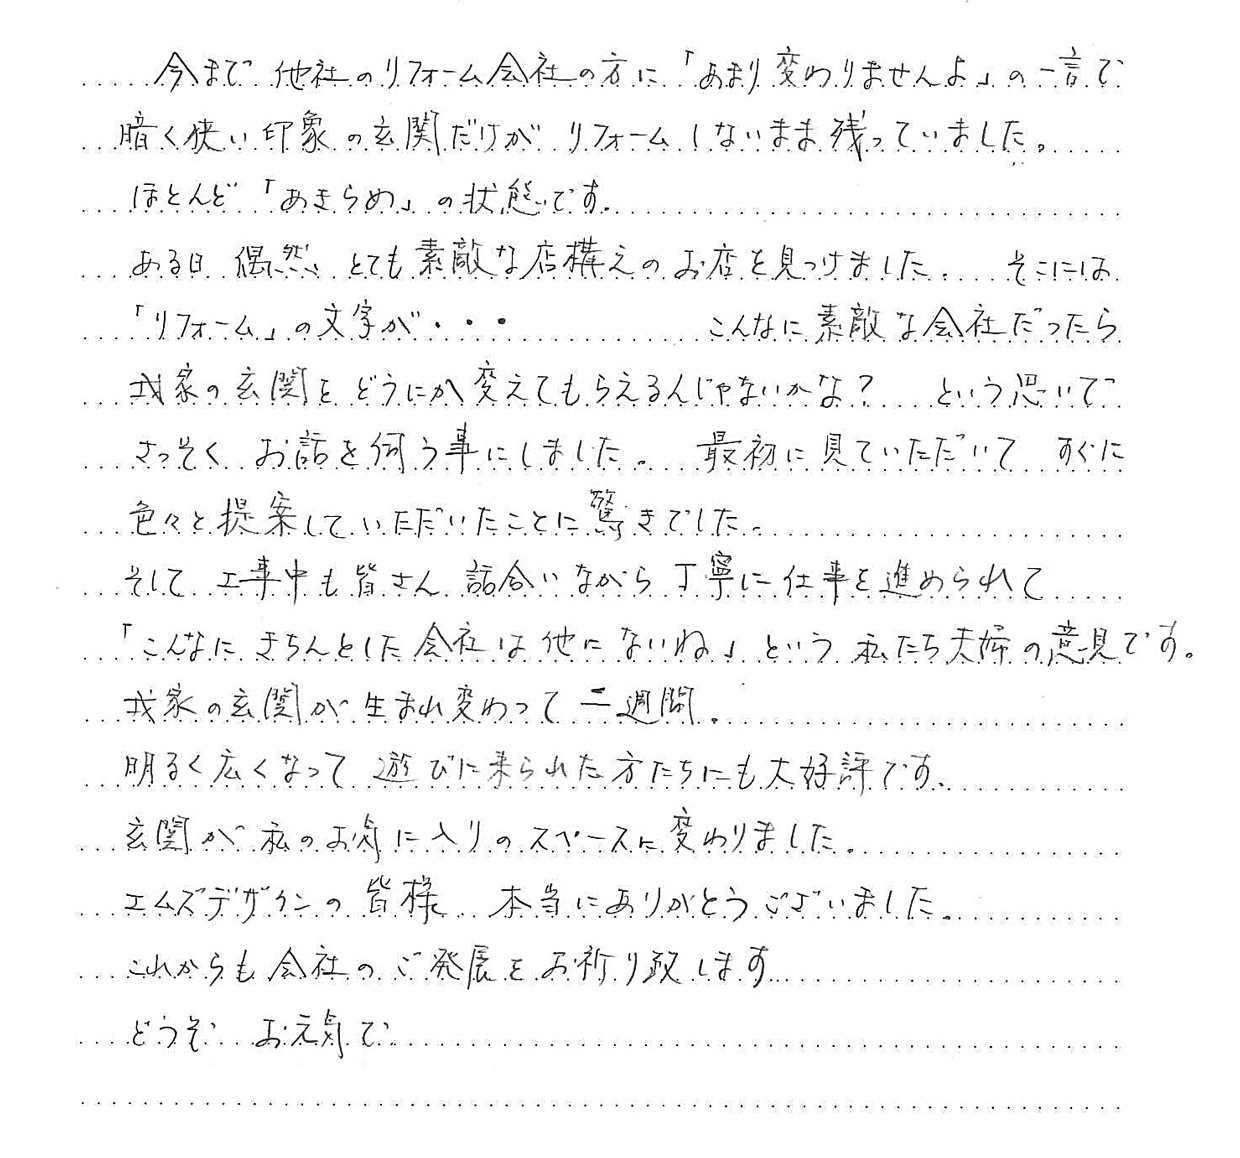 今まで 他社のリフォーム会社の方に「あまり変わりませんよ」の一言で
暗く狭い印象の玄関だけが リフォームしないまま残っていました。
ほとんど「あきらめ」の状態です。
ある日 偶然 とても素敵な店構えのお店を見つけました。 そこには
「リフォーム」の文字が・・・ こんなに素敵な会社だったら
我家の玄関をどうにか変えてもらえるんじゃないかな? という思いで
さっそく お話を伺う事にしました。 最初に見ていただいて すぐに
色々と提案していただいたことに驚きでした。
そして 工事中も皆さん 話合いながら丁寧に仕事を進められて
「こんなに きちんとした会社は他にないね」という 私たち夫婦の意見です。
我家の玄関が生まれ変わって 二週間。
明るく広くなって 遊びに来られた方たちにも大好評です。
玄関が 私のお気に入りのスペースに変わりました。
エムズデザインの皆様 本当にありがとうございました。
これからも会社のご発展をお祈り致します
どうぞ お元気で